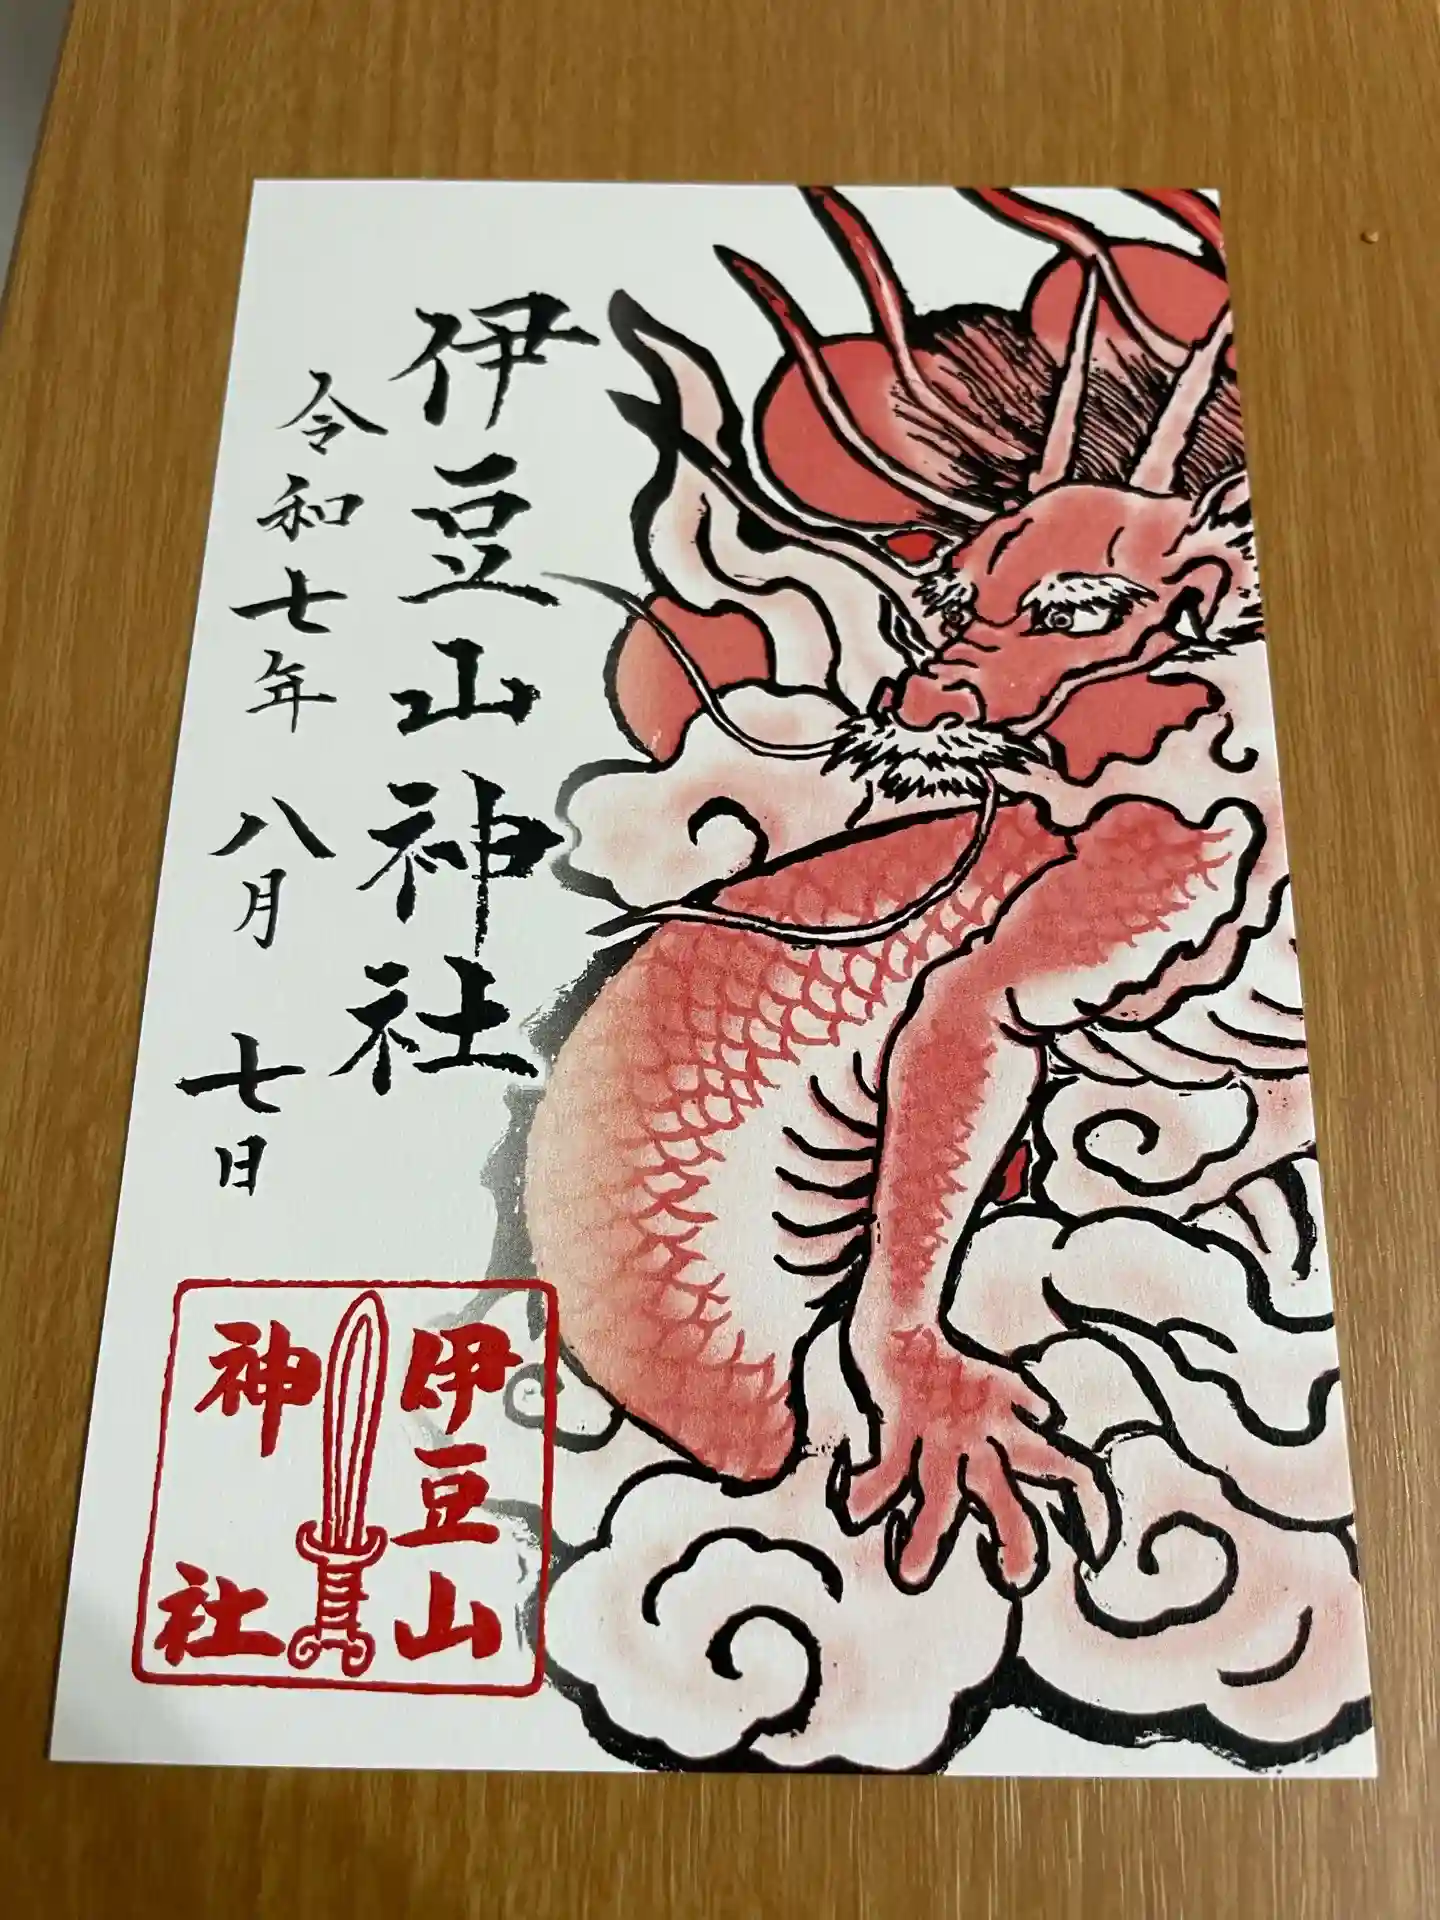 伊豆山神社
令和七年 八月 七日
伊豆山
神社